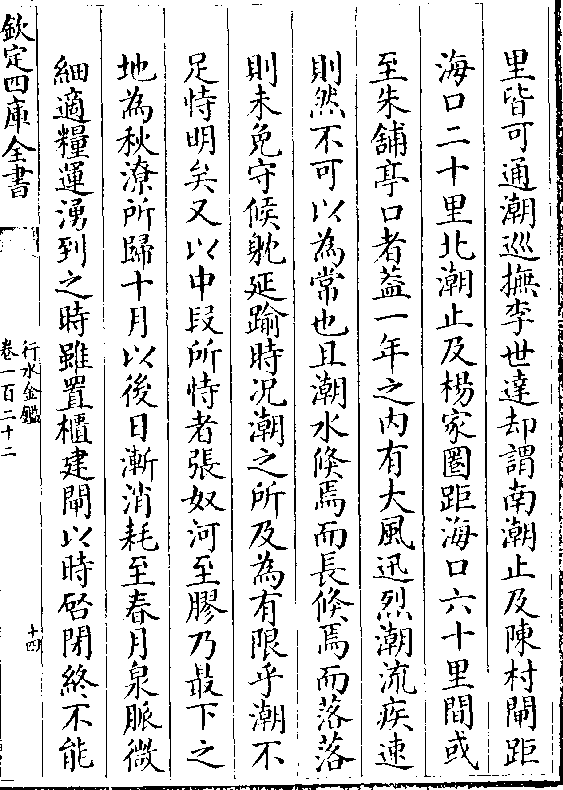 里皆可通潮巡撫李世達却謂南潮止及陳村閘距
海口二十里北潮止及楊家圏距海口六十里間或
至朱舖亭口者葢一年之内有大風迅烈潮流疾速
則然不可以為常也且潮水倐焉而長倐焉而落落
則未免守候躭延踰時况潮之所及為有限乎潮不
足恃明矣又以中段所恃者張奴河至膠乃最下之
地為秋潦所歸十月以後日漸消耗至春月泉脈微
細適糧運湧到之時雖置櫃建閘以時啓閉終不能
欽定四庫全書
行水金鑑
卷一百二十二
十四